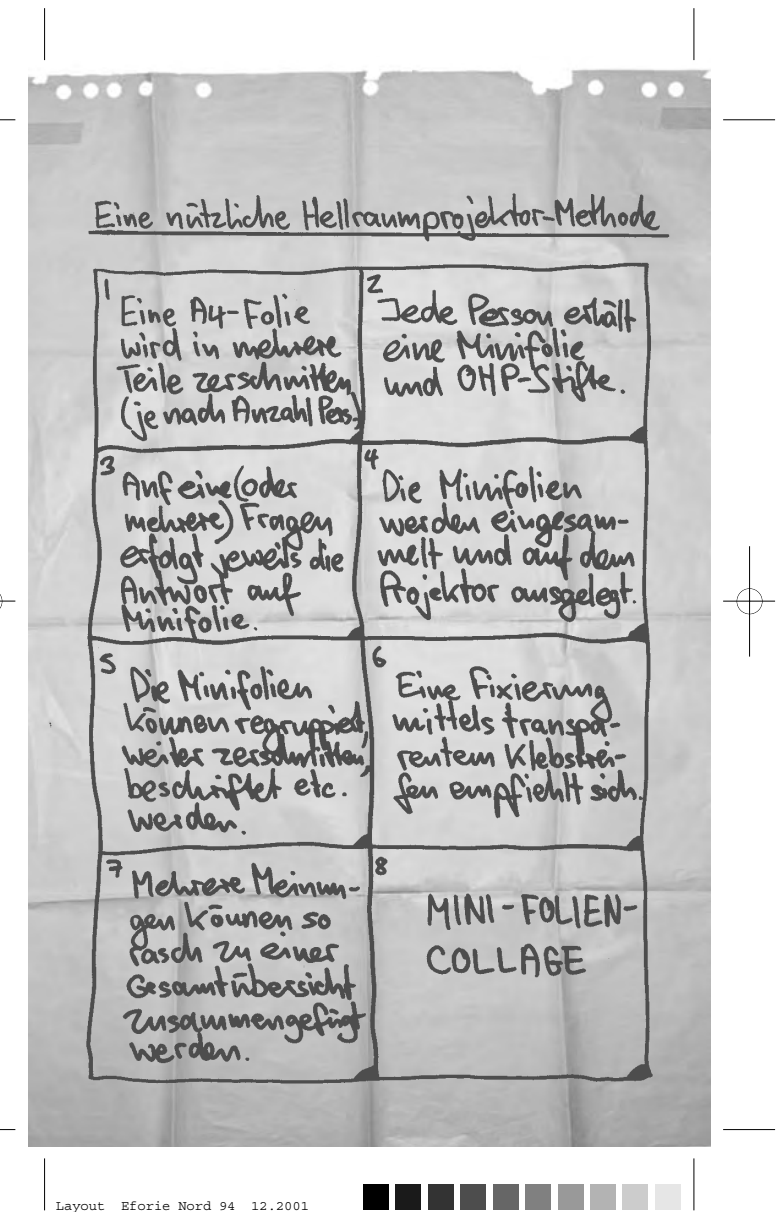 Eine nützliche Hellraumprojektor-Methode
1
Eine A4-Folie
wird in mehrere
Teile zerschnitten
(je nach Anzahl Pers.)
2
Jede Person erhält
eine Minifolie
und OHP-Stifte.
3
Auf eine (oder
mehrere) Fragen
erfolgt jeweils die
Antwort auf
Minifolie.
4
Die Minifolien
werden eingesam-
melt und auf dem
Projektor ausgelegt.
5
Die Minifolien
können regruppiert,
weiter zerschnitten,
beschriftet etc.
werden.
6
Eine Fixierung
mittels transpa-
rentem Klebstrei-
fen empfiehlt sich.
7
Mehrere Meinun-
gen können so
rasch zu einer
Gesamtübersicht
zusammengefügt
werden.
8
MINI-FOLIEN-
COLLAGE
Layout Eforie Nord 94 12.2001